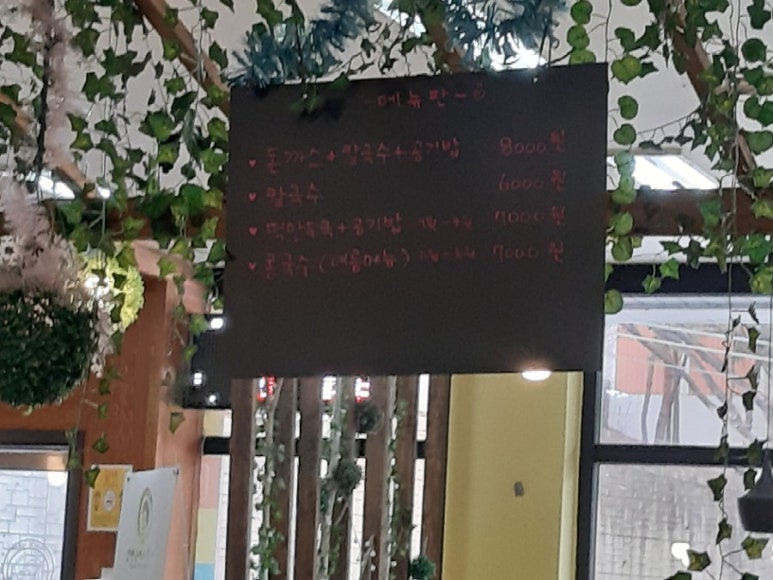 -메뉴판-
♥ 돈까스+칼국수+공기밥 8000원
♥ 칼국수 6000원
♥ 떡만두국+공기밥 7000원
♥ 콩국수 (여름메뉴) 7000원